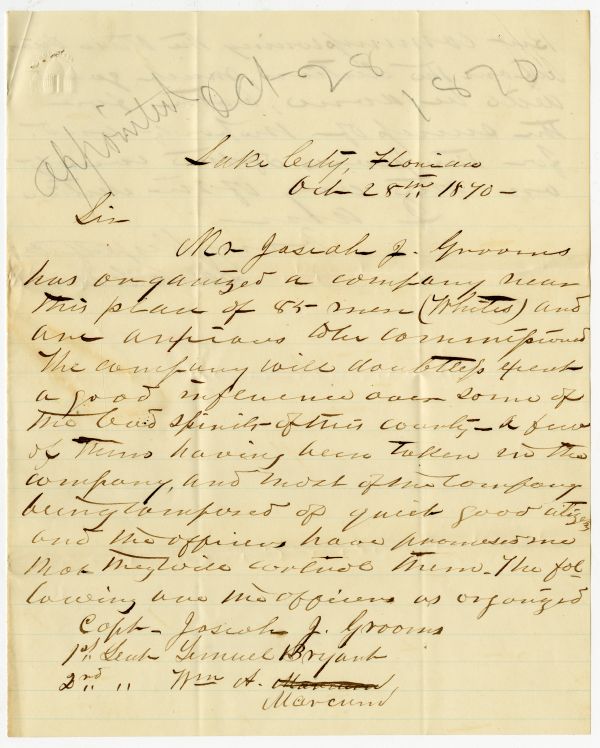 appointed Oct 28 1870
Lake City, Florida
Oct 28th 1870 -
Sir
Mr Josiah J. Grooms
has organized a company near
this place of 85 men (Whites) and
are anxious to be commissioned
The company will doubtless exert
a good influence over some of
the bad spirits of this county - a few
of them having been taken in the
company, and most of the company
being composed of quiet good citizens
and the officers have promised me
that they will control them - The fol-
lowing are the officers as organized
Capt - Josiah J. Grooms
1st Leut Lemuel Bryant
2nd " " Wm A. Marcum
Marcum